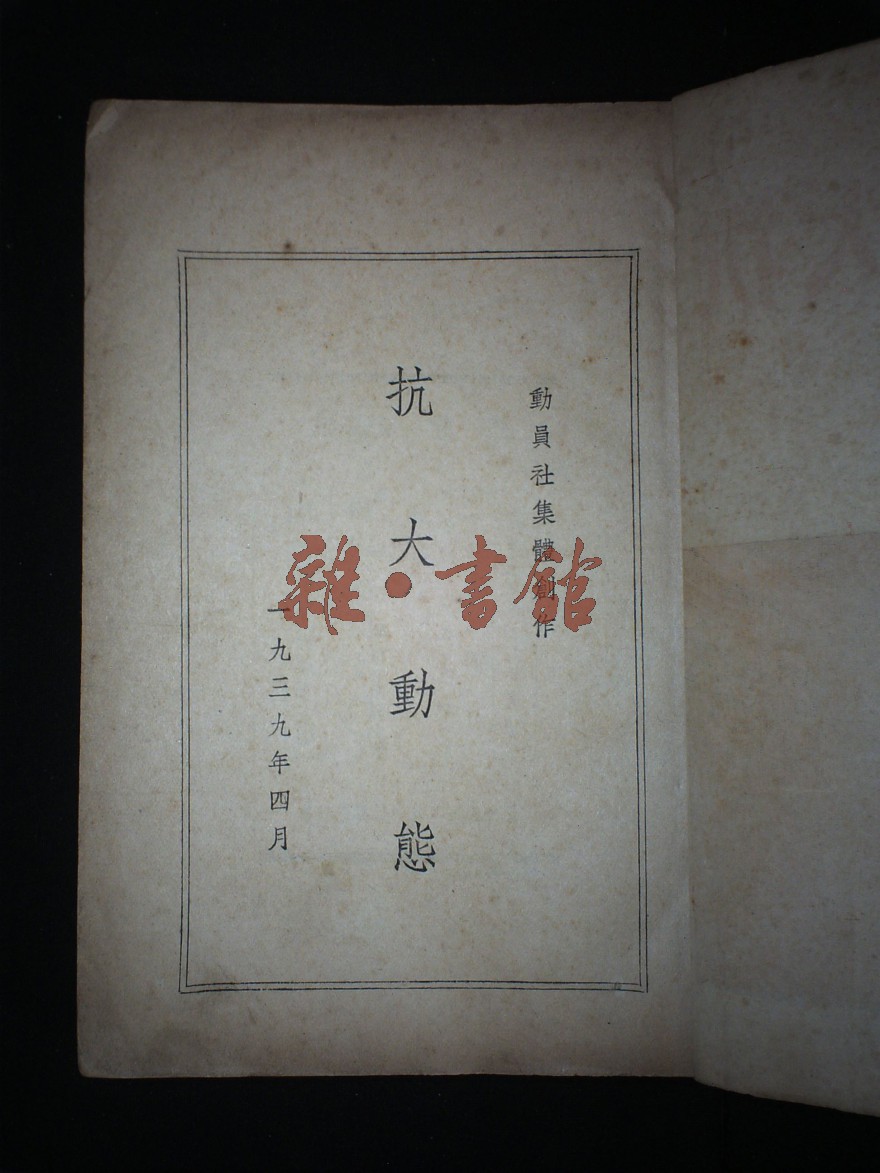 動員社集體創作
抗大動態
一九三九年四月
雜·書館